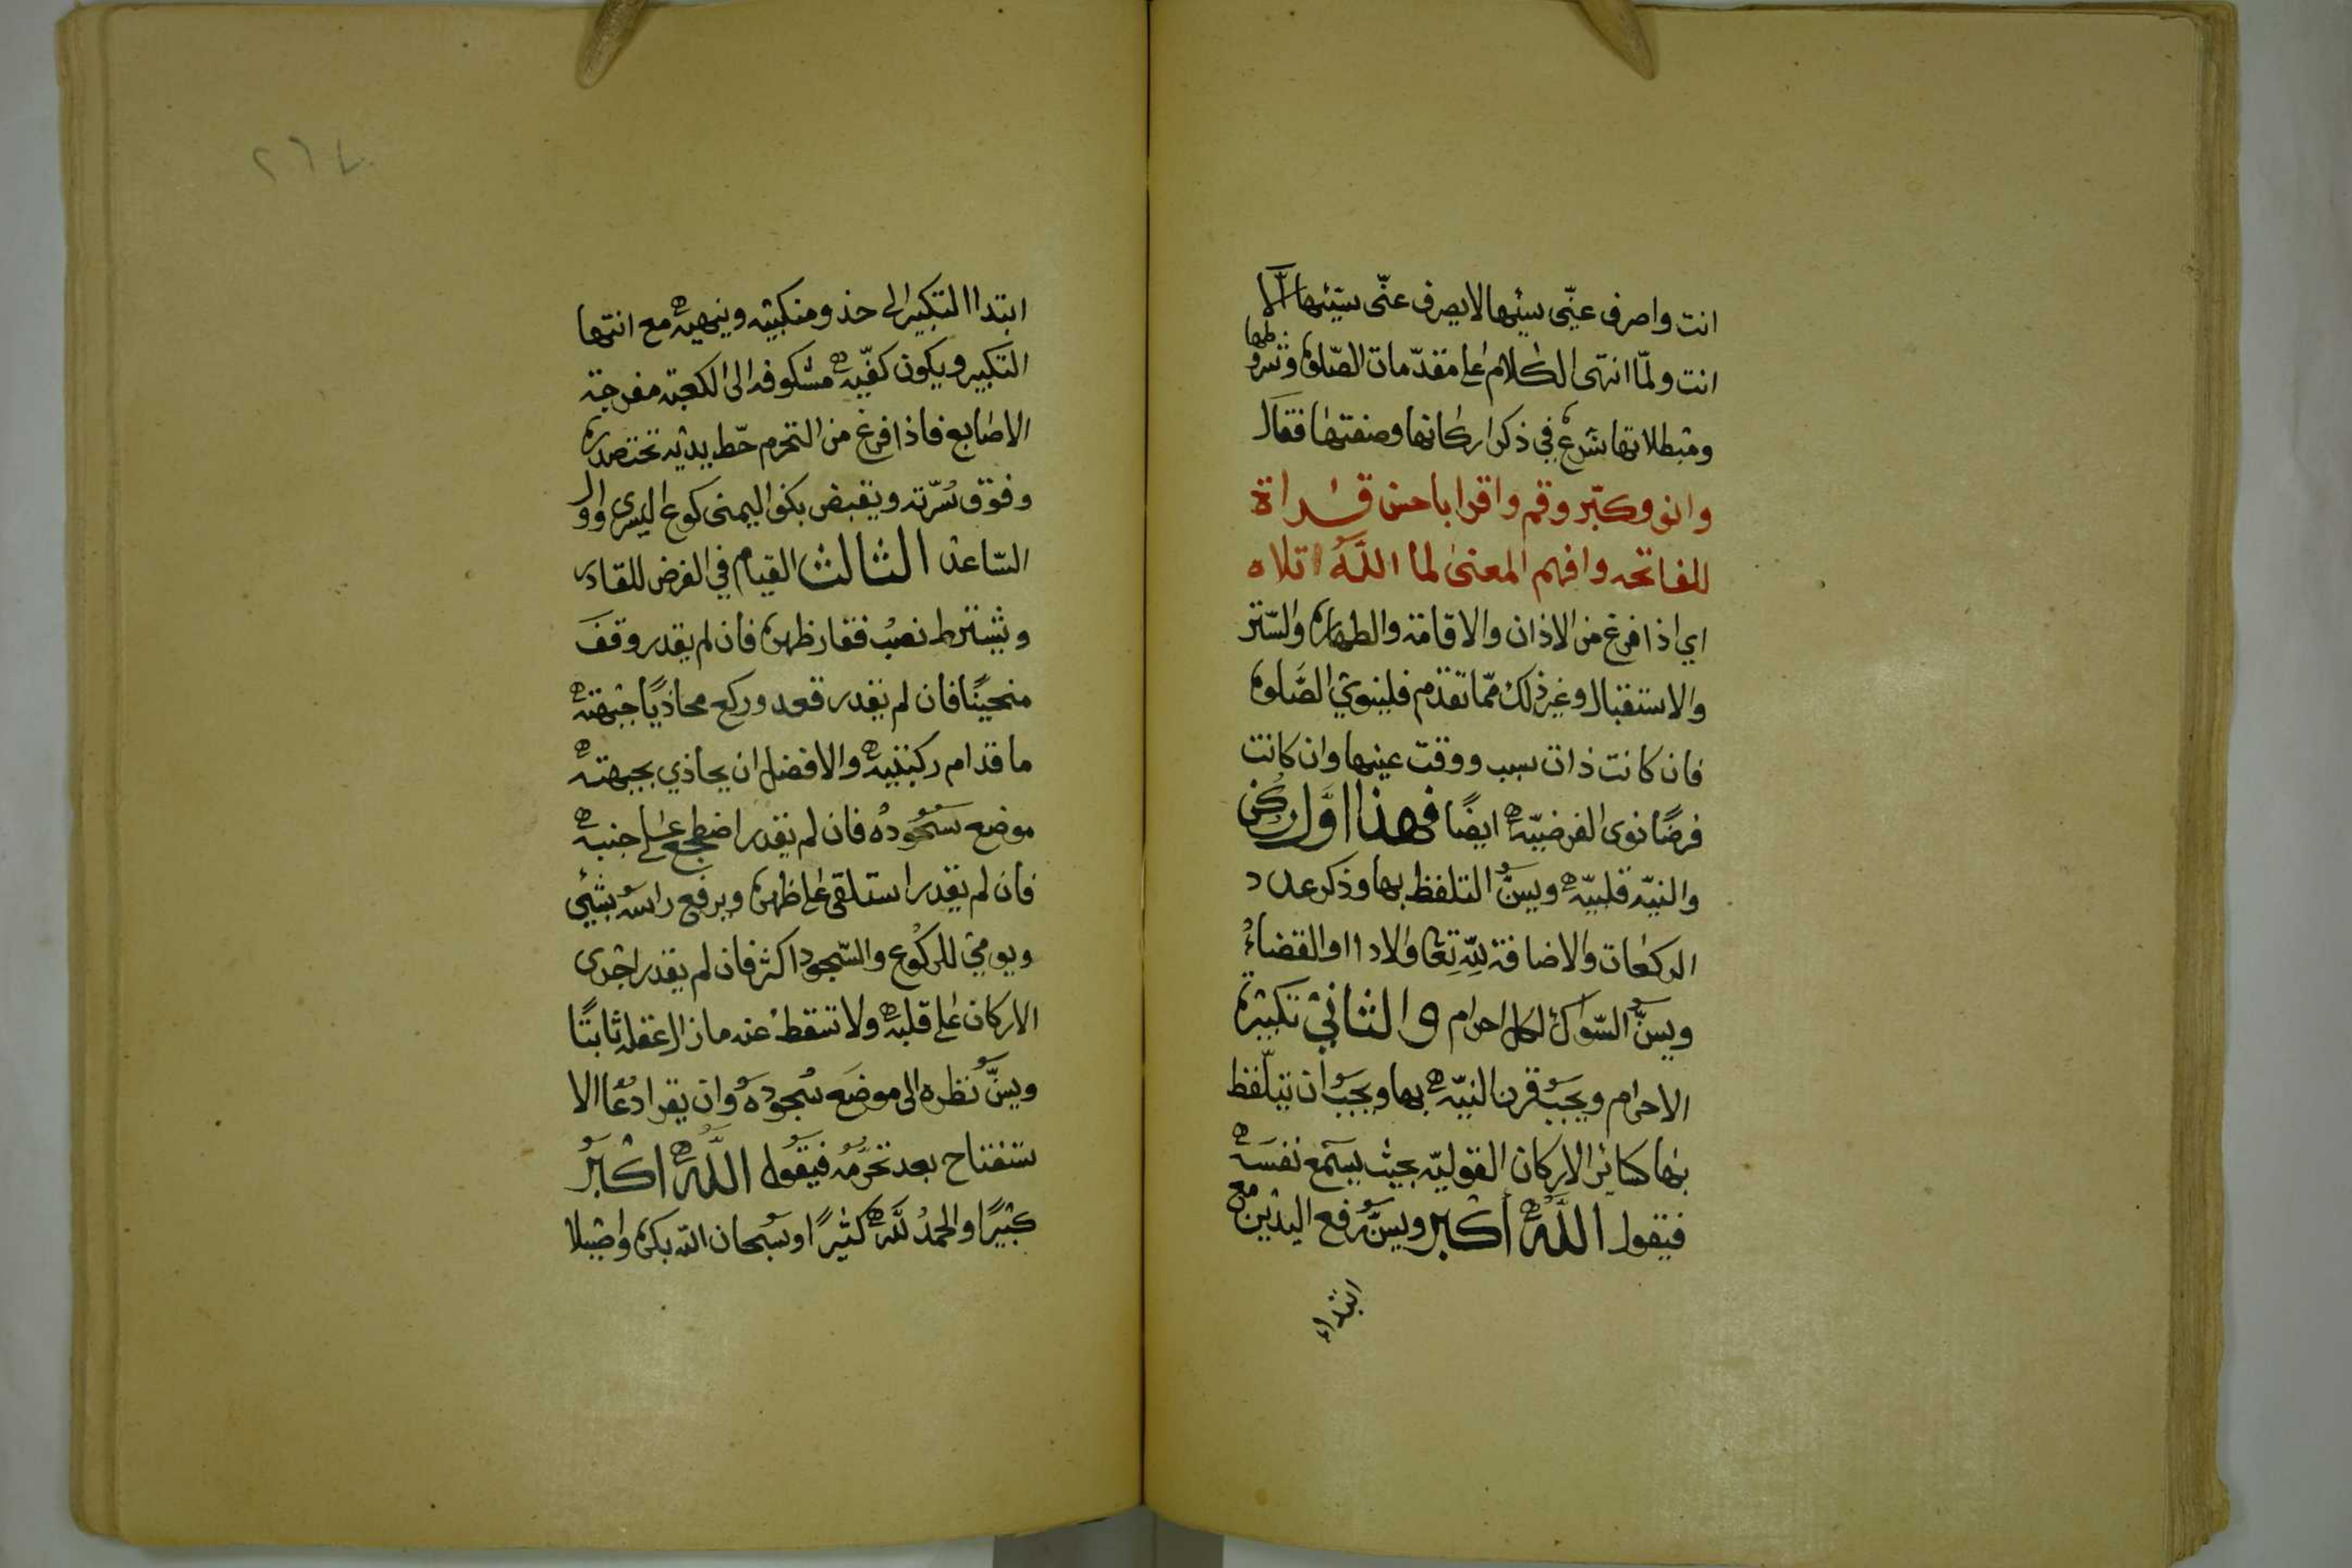 انت واصرف عنّي سيئها لا يصرف عنّي سيّئها الّا
انت ولمّا انتهى الكلام على مقدّمات الصّلوة وشروطها
ومبطلاتها شرع في ذكر اركانها وصفتها فقال
وانو وكبّر وقم واقرا باحسن قراة
للفاتحه وافهم المعنى لما اللّه اتلاه
اي اذا فرغ من الاذان والاقامة والطهارة والسّتر
والاستقبال وغير ذلك ممّا تقدم فلينوي الصّلوة
فان كانت ذات سبب ووقت عينها وان كانت
فرضًا نوى الفرضيّه ايضًا فهذا اوّل ركن
والنيّه قلبيّه ويسنّ التلفظ بها وذكر عدد
الركعات والاضافة للّه تعا والادا او القضاء
ويسنّ السّواك لكل احرام والثاني تكبيرة
الاحرام ويجب قرن النيّه بها ويجب ان يتلفظ
بها كسائر الاركان القوليّه بحيث يسمع نفسه
فيقول اللّه اكبر ويسنّ رفع اليدين مع
ابتداء
٢٦٧
ابتدا التكبير الى حذو منكبيه وينهيه مع انتها
التكبير ويكون كفّيه مشكوفه الى الكعبة مفرجة
الاصابع فاذا فرغ من التحرم حّط يديه تحت صدره
وفوق سُرّته ويقبض بكف اليمنى كوع اليسرى و
السّاعد الثالث القيام في الفرض للقادر
ويشترط نصب فقار ظهره فان لم يقدر وقف
منحينًا فان لم يقدر قعد وركع محاذيًا جبهته
ما قدام ركبتيه والافضل ان يحاذي بجبهته
موضع سجوده فان لم يقدر اضطجع على جنبه
فان لم يقدر استلقى على ظهره ويرفع راسه بشئي
ويومي للركوع والسّجود اكثر فان لم يقدر اجرى
الاركان على قلبه ولا تسقط عنه ما زال عقله ثابتًا
ويسنّ نظره الى موضع سجوده وان يقرا دعا الا
ستفتاح بعد تحرّمه فيقول اللّه اكبر
كبيرًا والحمد للّه كثيرًا وسبحان اللّه بكرة واصيلا